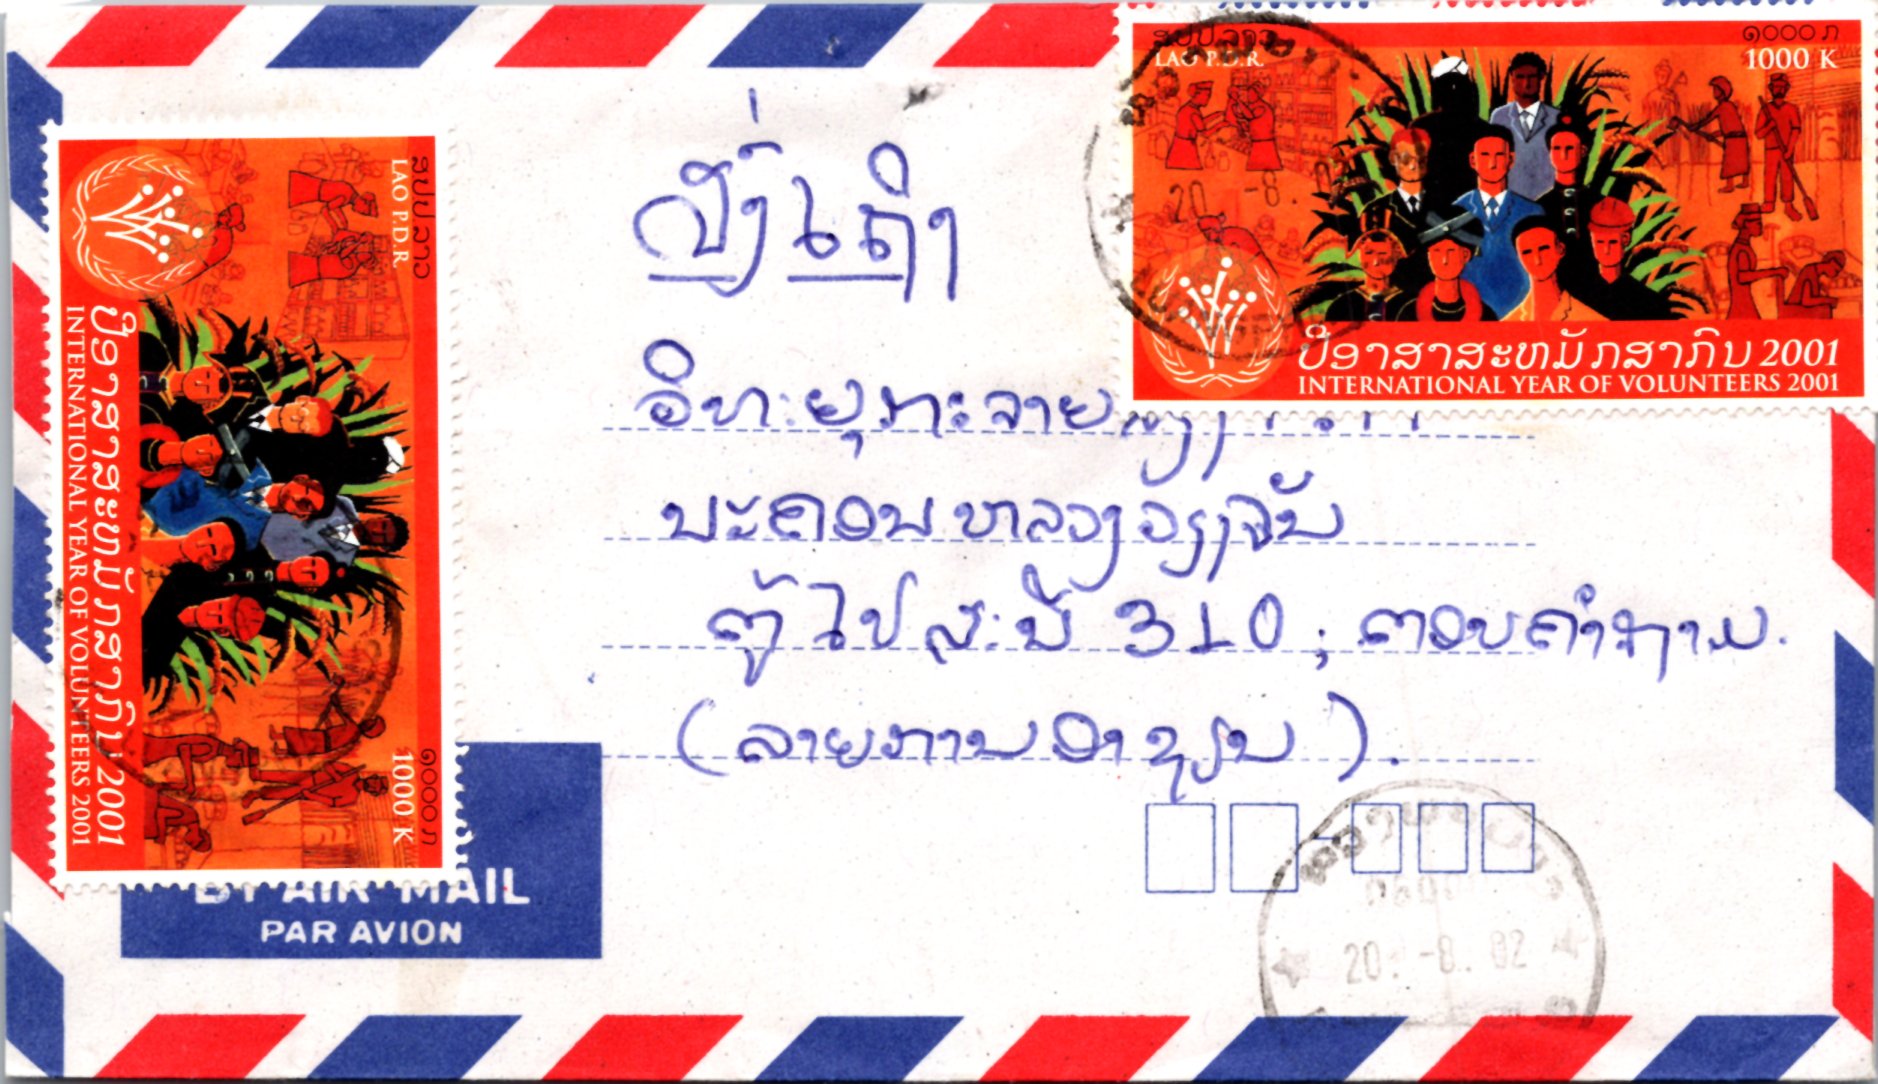 ສປປ ລາວ
LAO P.D.R.
໑໐໐໐ ກ
1000 K
ປີອາສາສະຫມັກສາກົນ 2001
INTERNATIONAL YEAR OF VOLUNTEERS 2001
20 -8. 02
ສປປ ລາວ
LAO P.D.R.
໑໐໐໐ ກ
1000 K
ປີອາສາສະຫມັກສາກົນ 2001
INTERNATIONAL YEAR OF VOLUNTEERS 2001
ສົ່ງເຖິງ
ວິທະຍຸກະຈາຍສຽງ
ນະຄອນຫລວງວຽງຈັນ
ຕູ້ໄປສະນີ 310; ຕອບຄຳຖາມ.
(ລາຍການອາຊຽນ).
BY AIR MAIL
PAR AVION
20. -8. 02